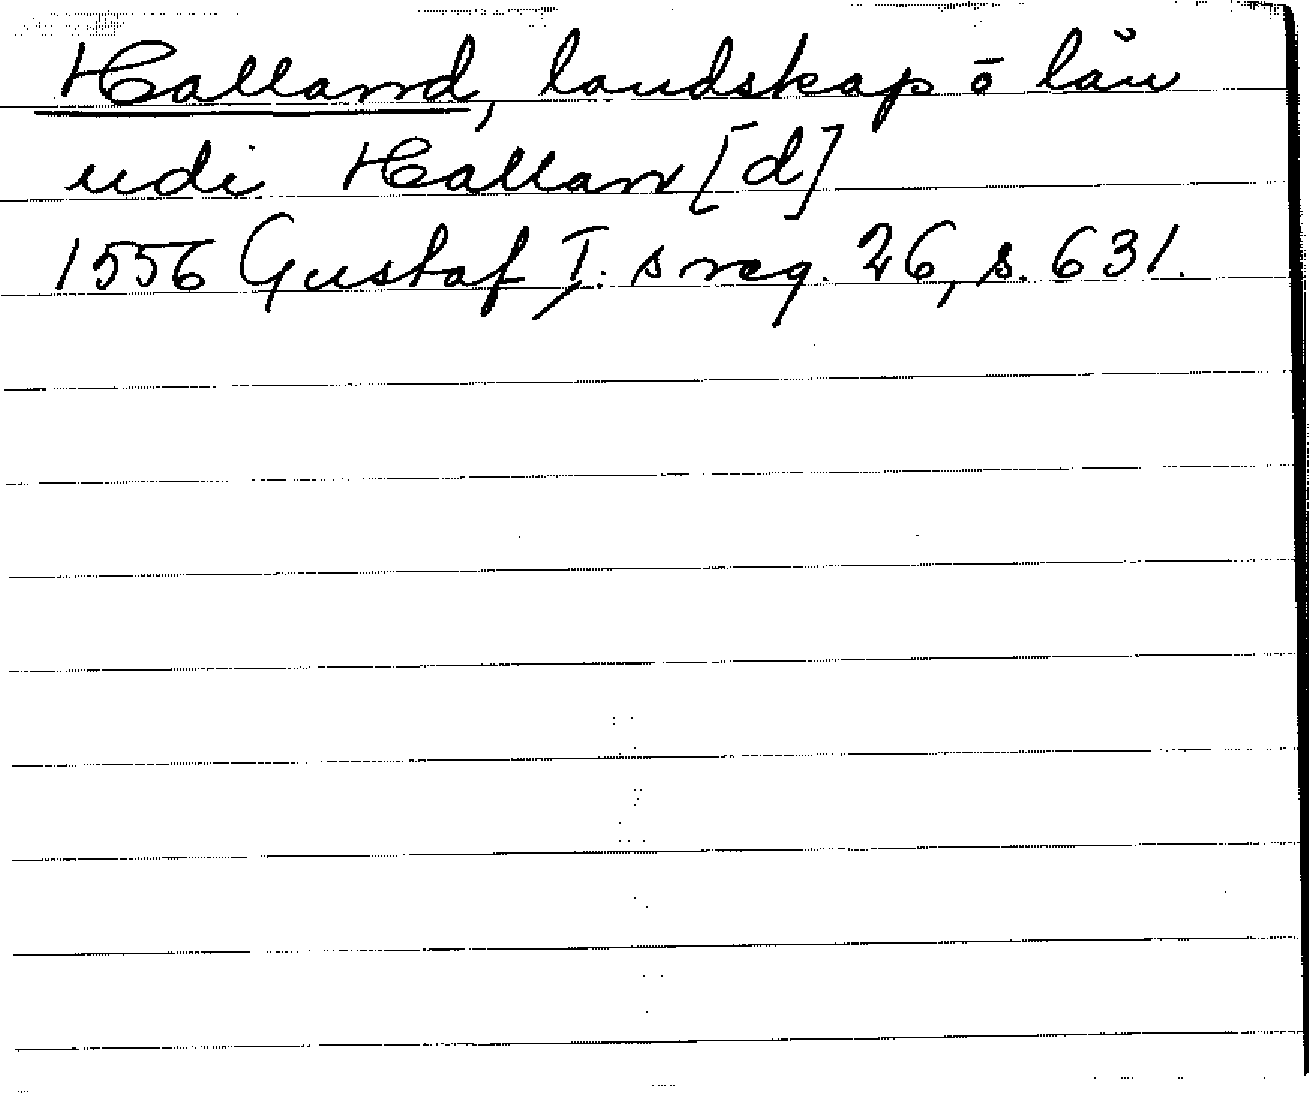 Halland, landskap ō län
udi Hallan[d]
1556 Gustaf I:s reg. 26, s. 631.